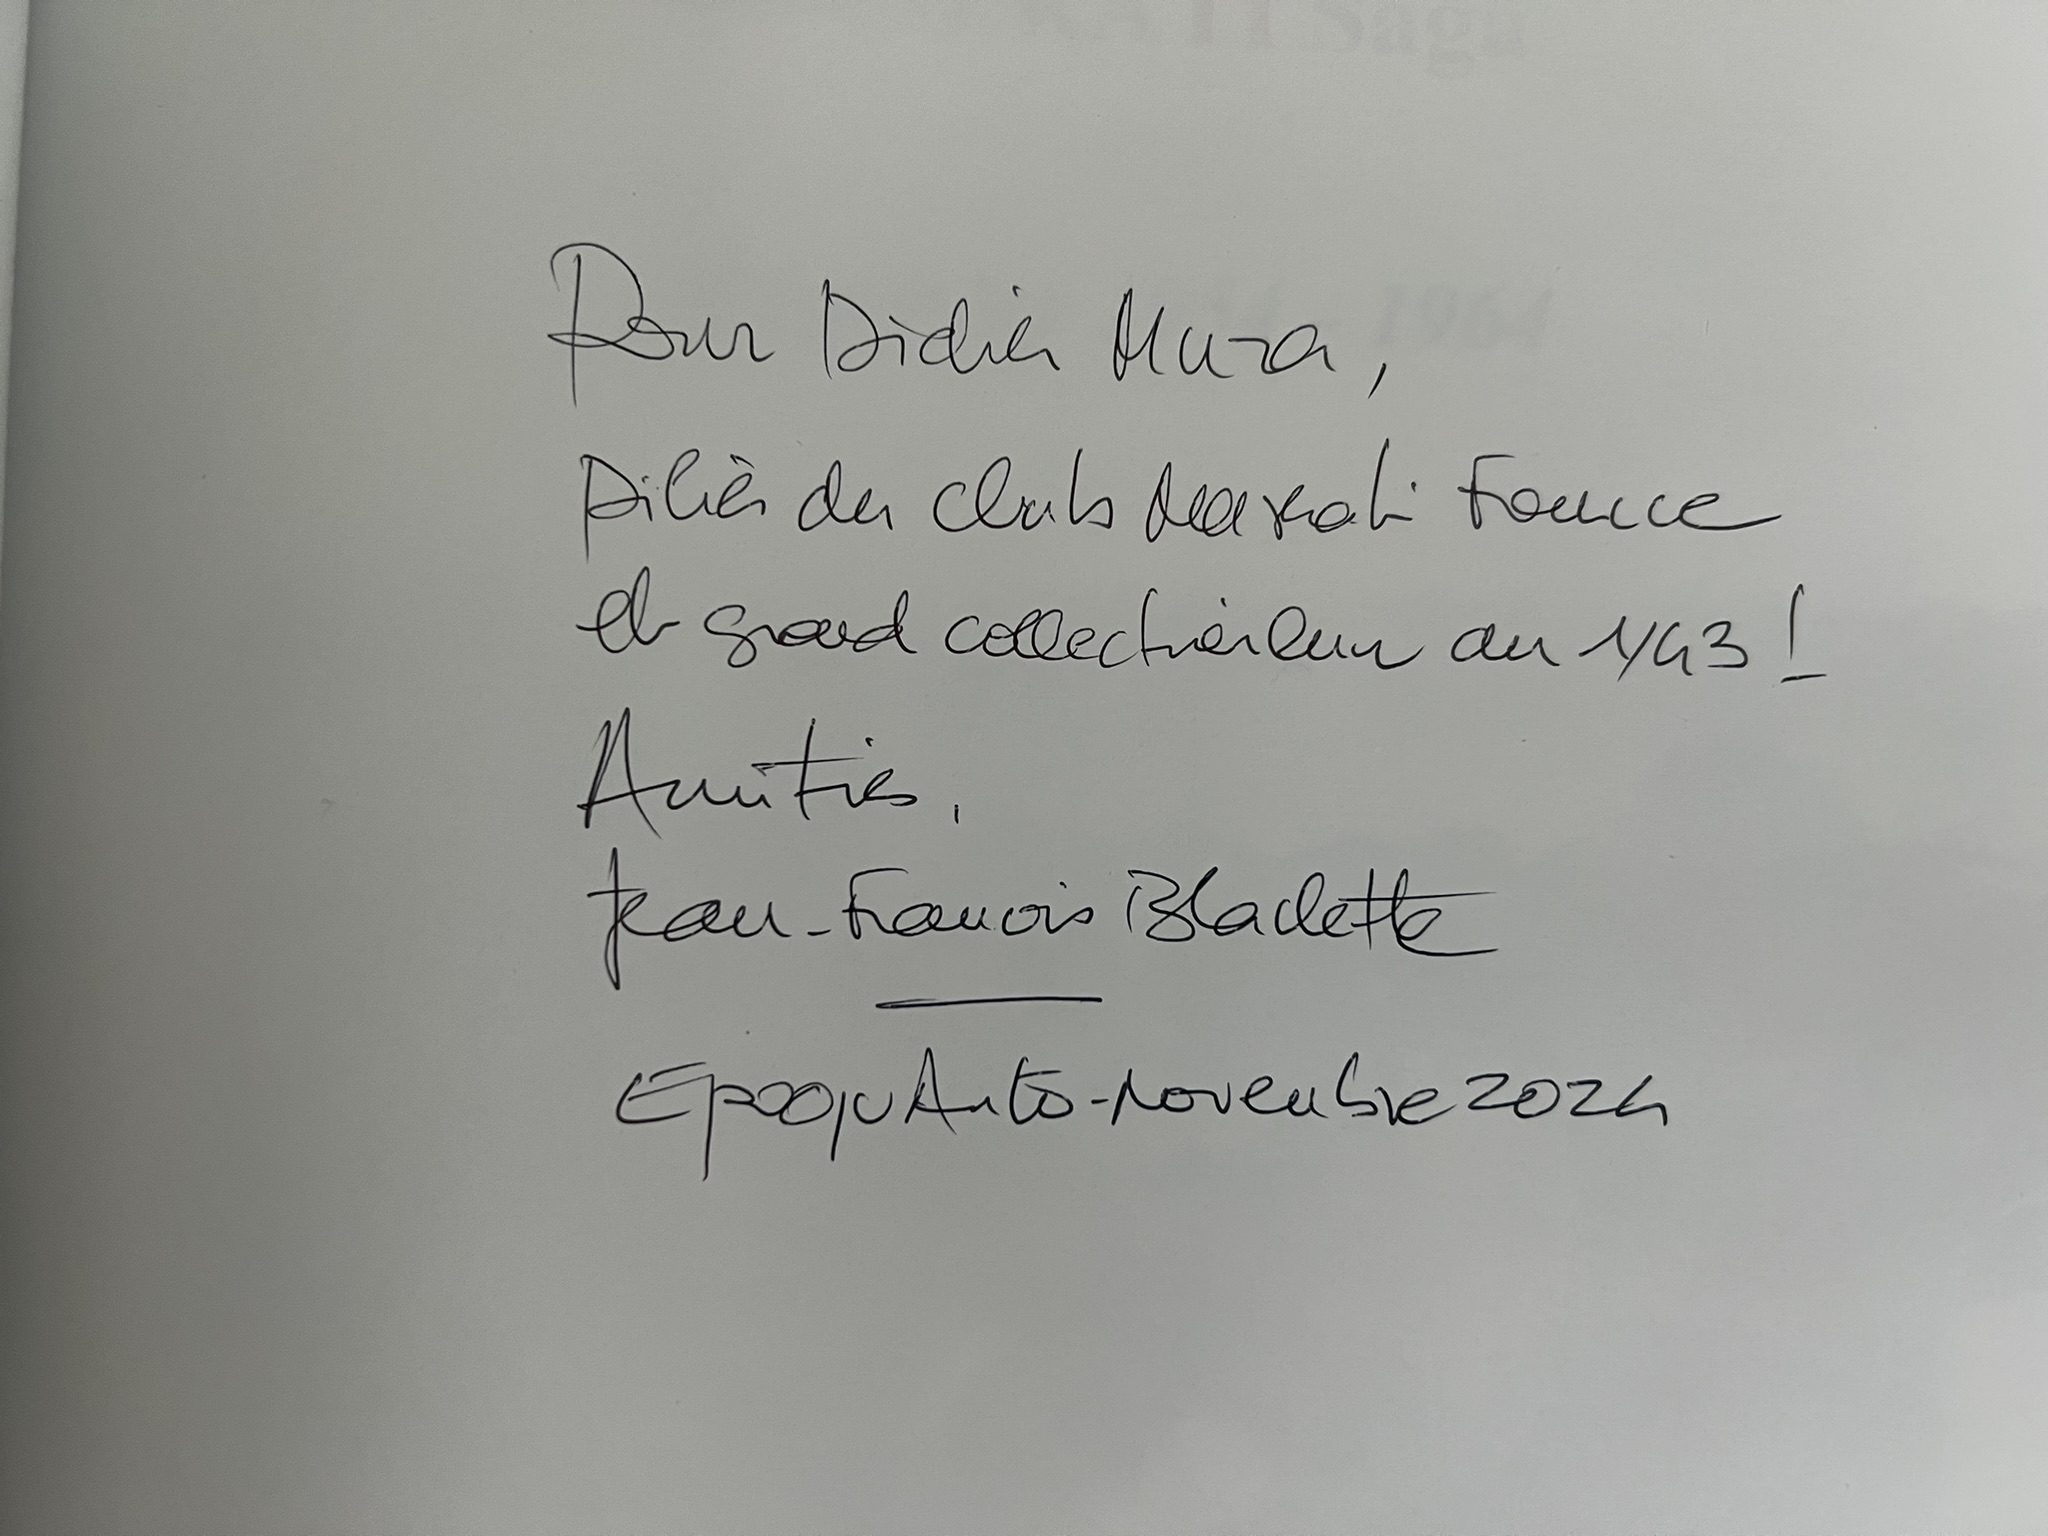 Pour Didier Muza,
pilier du club Maserati France
et grand collectionneur au 1/43 !
Amitiés.
Jean-François Blachette
EpoquAuto - Novembre 2024